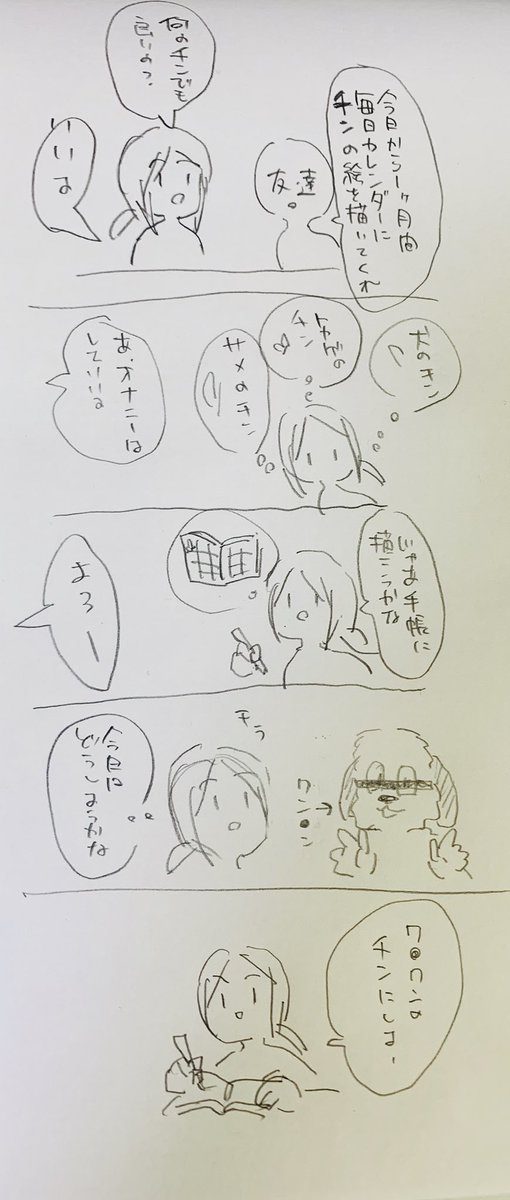 今日から一ヶ月間
毎日カレンダーに
チンの絵を描いてくれ
友達
何のチンでも
良いの?
いいよ
犬のチン
トカゲの
チン
サメのチン
あ、オナニーは
していいよ
じゃあ手帳に
描こうかな
よろー
ワン●ン
チラ
今日は
どうしようかな
ワ●ワンの
チンにしよー